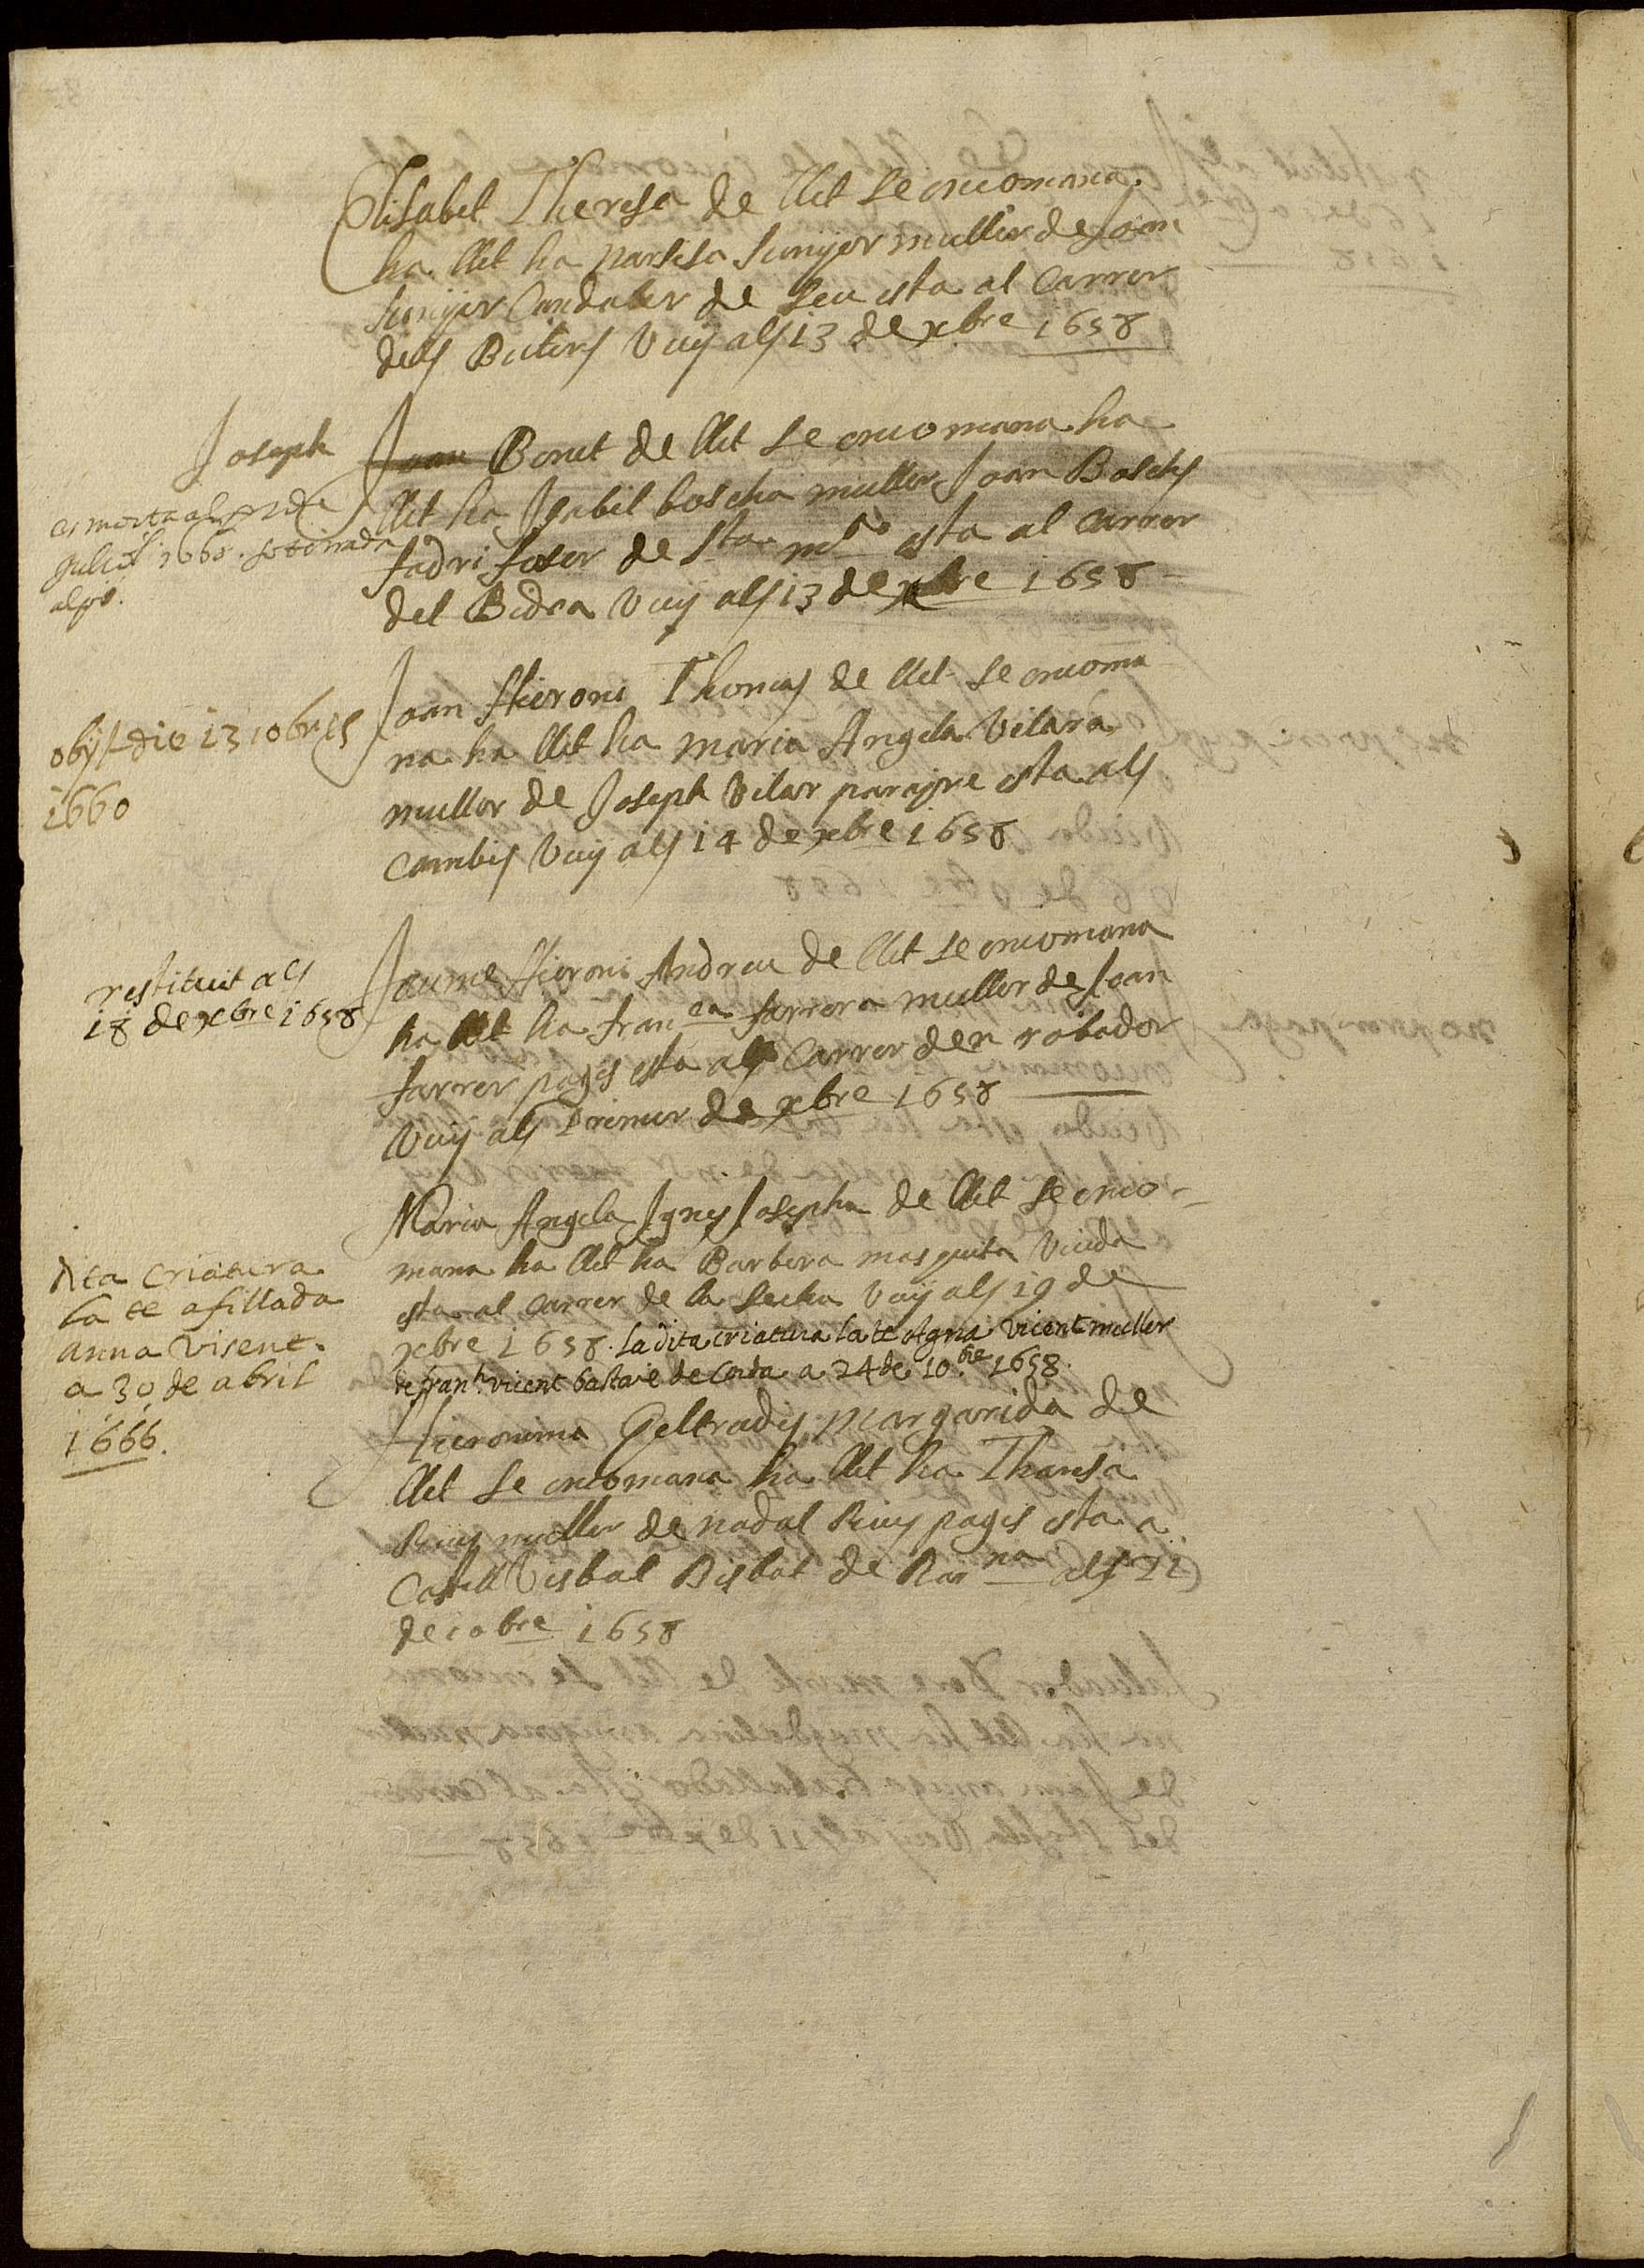 Elisabet Theresa de llet se encomana
ha llet ha Narsisa Sunyer muller de Joan
Sunyer Candaler de Seu esta al Carrer
dels Vuy als 13 de xbre 1658
Joseph
Joan Bonet de llet se encomana ha
llet ha Isabel boscha muller Joan Bosch
fadri de Sta Ma esta al Carrer
del Bidra Vuy als 13 de xbre 1658
es morta als 2 de
Juliol 1660
Joan Hieroni Thomas de llet se encoma
na ha llet ha maria Angela Vilara
muller de Joseph Vilar parayre esta als
Cambis Vuy als 14 de xbre 1658
obyt die 13 10bris
1660
Jaume Hieroni Andreu de llet se encomana
ha llet ha Franca farrera muller de Joan
farrer pages esta als Carrer den robador
Vuy als Primer de xbre 1658
restituit als
18 de xbre 1658
Maria Angela Ignes Josepha de llet se enco-
mana ha llet ha Barbera viuda
esta al Carrer de la Secha Vuy als 19 de
xbre 1658. La dita criatura la te Agna Vicent muller
de franh vicent bastaix de Corda a 24 de 10bre 1658.
dta criatura
la te afillada
anna visent.
a 30 de abril
1666.
Hieronima Geltrudis Margarida de
llet se encomana ha llet ha Tharesa
Rius muller de nadal Rius pages esta a
Castell Visbal Bisbat de Barna als 21
de 10bre 1658